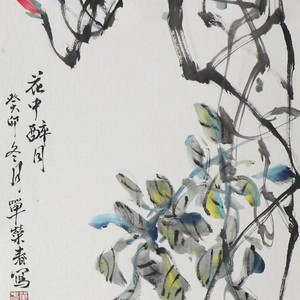 花中醉月
癸卯冬月單榮春寫